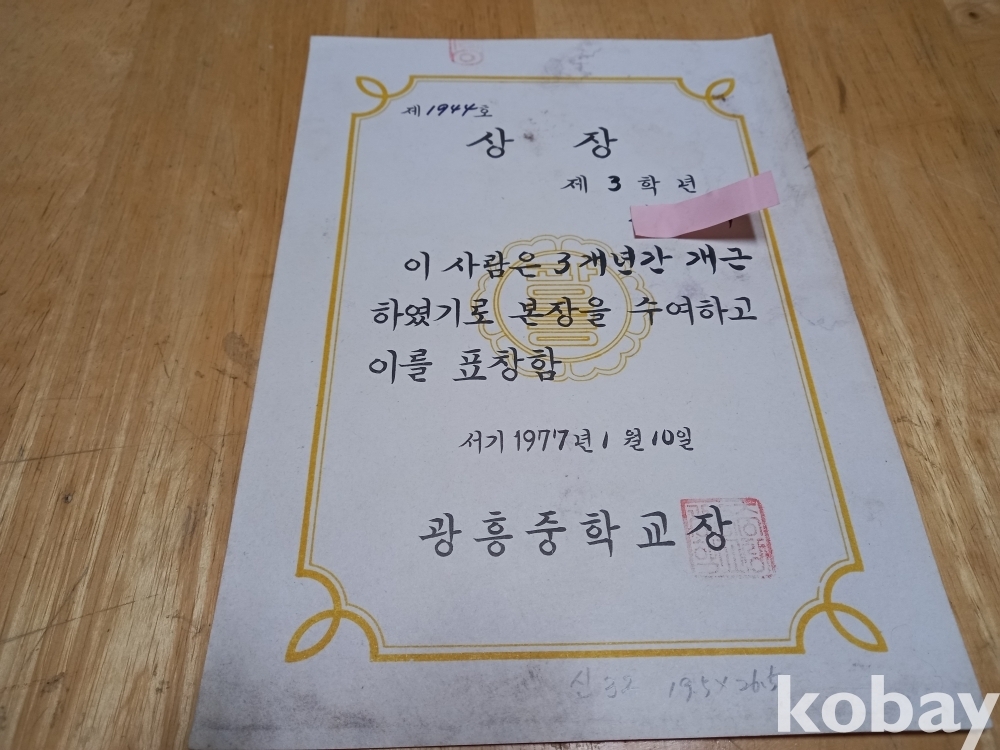 제 1944 호
상 장
제 3 학 년
이 사람은 3개년간 개근
하였기로 본장을 수여하고
이를 표창함
서기 1977년 1 월 10일
광흥중학교장
19.5 x 26.5
kobay